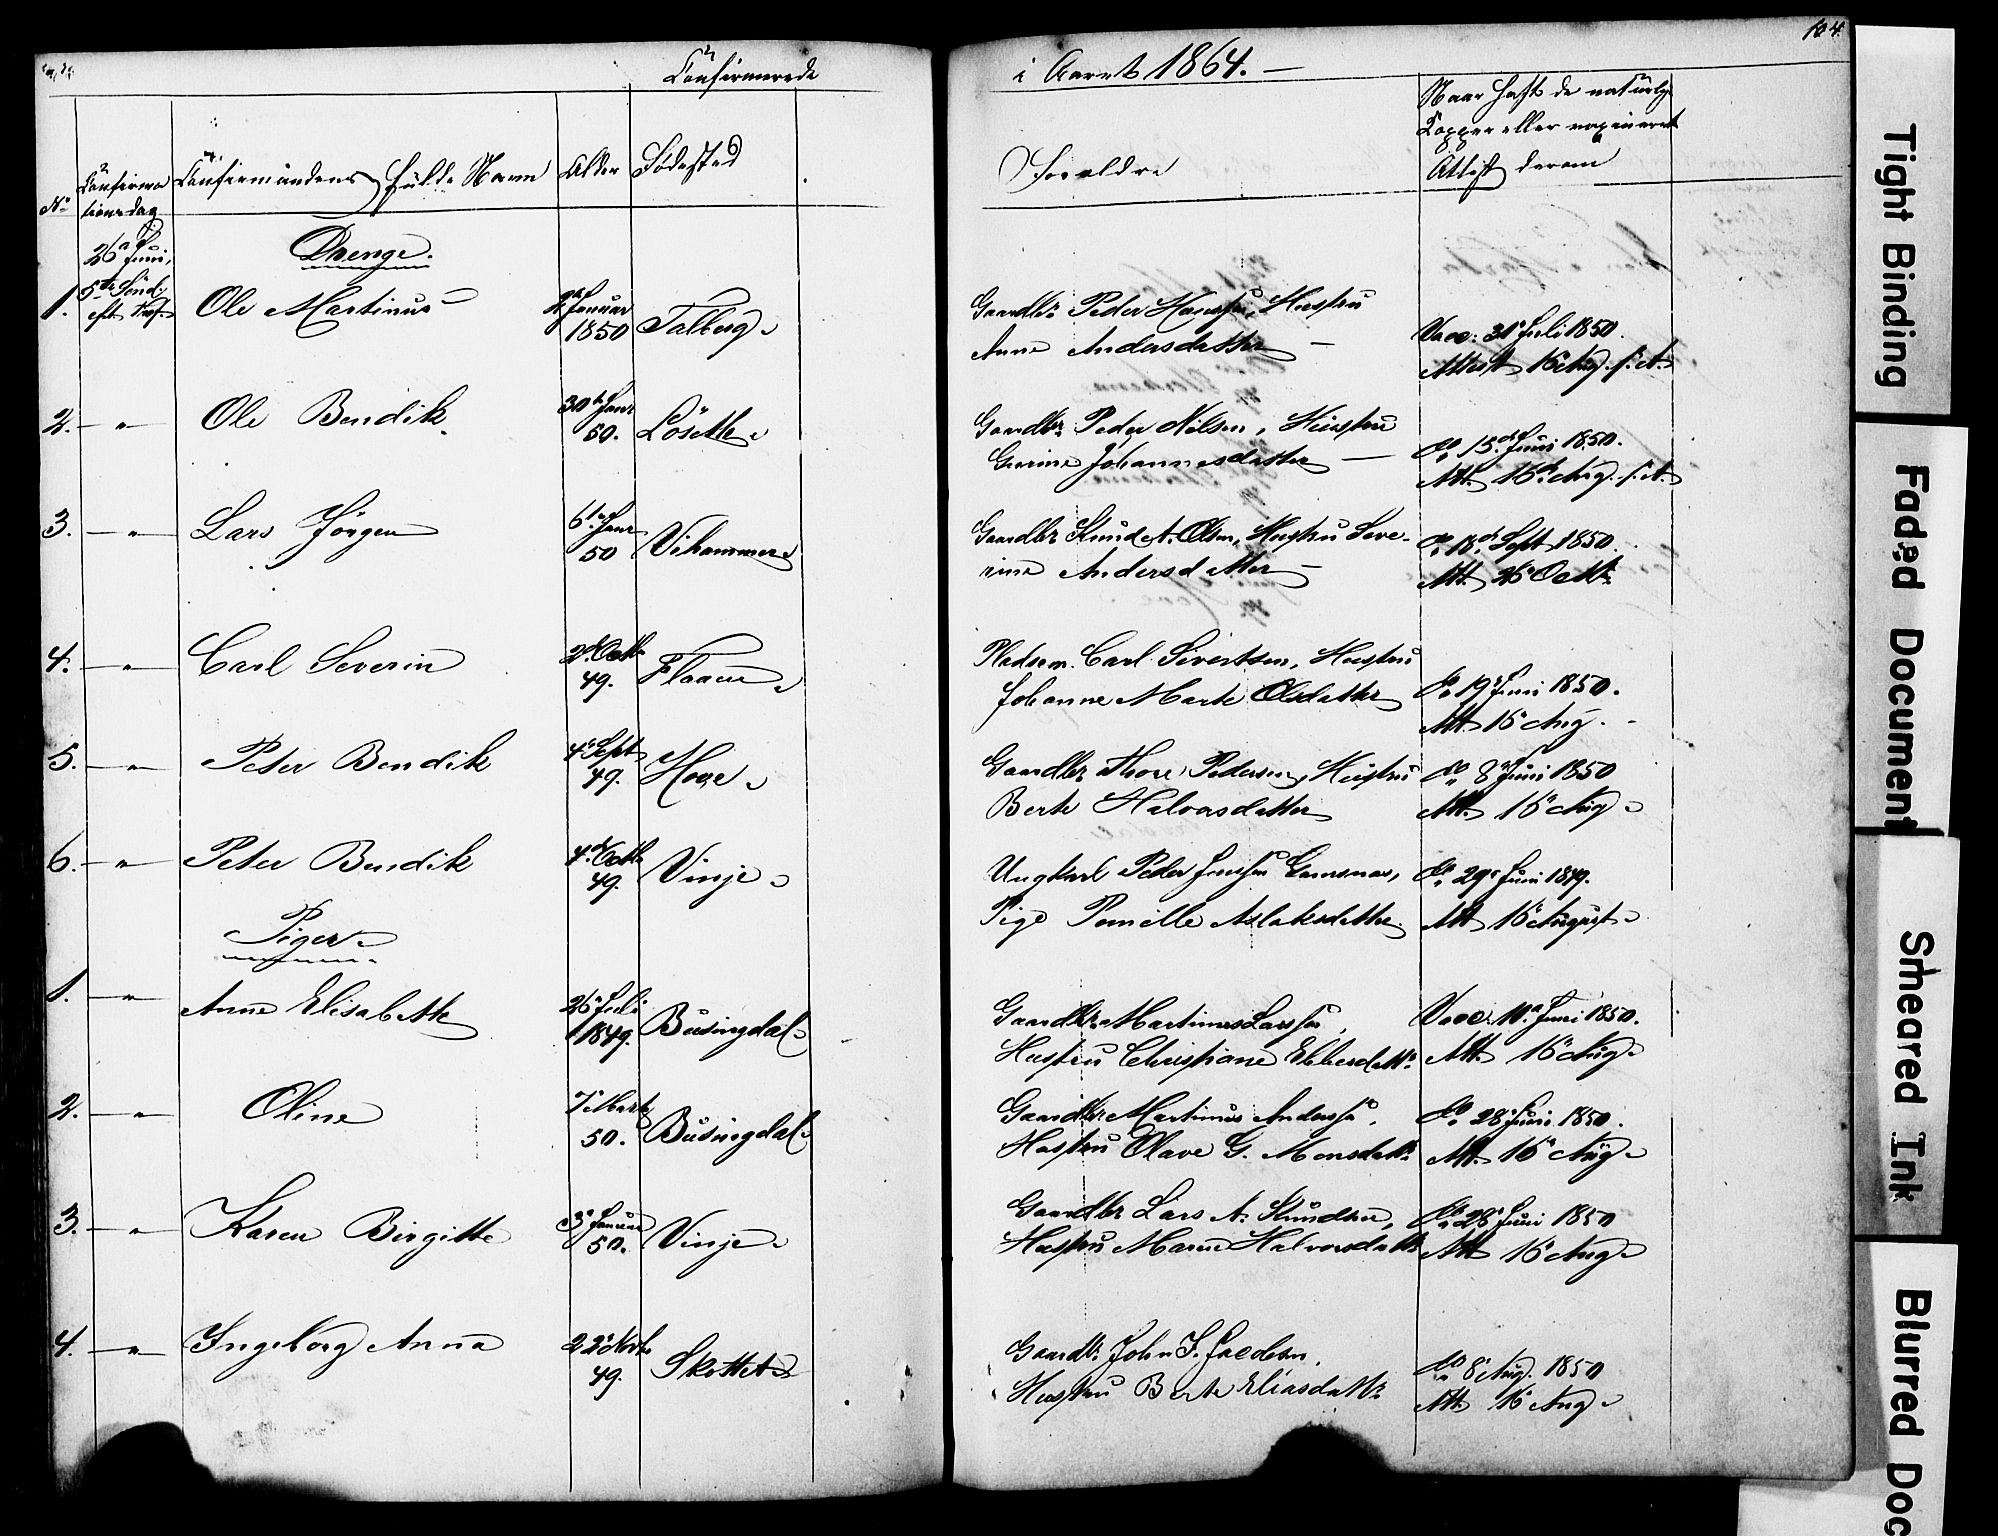 Confirmerede
i Aaret 1864. —
104
No
Confirma
tionsdag
Confirmandens fulde Navn
Alder
Fødested
Forældre
Naar haft de naturlige
Kopper eller vaccineret
Attest derom
26de Juni,
5te Sönd.
eft. Tref.
Drenge.
1.
Ole Martinus
Januar
1850
Talberg
Gaardbr. Peder Hansen, Hustru
Anne Andersdatter —
Vacc. 31 Juli 1850.
Attest 16 Aug. s. A.
2. — " —
Ole Bendik
30te Janr
50.
Lösette
Gaardbr. Peder Nilsen, Hustru
Gurine Johannesdatter —
Do 15de Juni 1850.
Att. 16de Aug. s. A.
3. — " —
Lars Jörgen
6te Janr
50
Vihammer
Gaardbr Knud A. Olsen, Hustru Seve-
rine Andersdatter —
Do 18de Sept 1850.
Att. 26 Octbr.
4. — " —
Carl Severin
2de Octb.
49.
Flaaem
Pladsem. Carl Sivertsen, Hustru
Johanne Marte Olsdatter
Do 19de Juni 1850.
Att. 16 Aug. -
5. — " —
Peter Bendik
4de Sept
49.
Hove
Gaardbr Thore Pedersen, Hustru
Berte Halvorsdatter
Do 8de Juni 1850
Att. 16 Aug
6. — " —
Peter Bendik
4de Octb.
49.
Vinje
Ungkarl Peder Jensen
Pige Pernille Aslaksdatter
Do 29de Juni 1849.
Att 16 August
Piger
1. — " —
Anne Elisabeth
26 Juli
1849.
Büsingdal
Gaardbr. Martinus Larssen,
Hustru Christiane Ebbesdattr.
Vacc. 10de Juni 1850.
Att. 16 Aug
2. — " —
Oline
7 Marts
50.
Büsingdal
Gaardbr. Martinus Anderssen,
Hustru Olave G. Monsdattr.
Do 28 Juni 1850.
Att. 16 Aug
3. — " —
Karen Birgitte
3 Januar
50.
Vinje
Gaardbr Lars A. Knudsen,
Hustru Maren Halvorsdattr
Do 28 Juni 1850
Att 16 Aug
4. — " —
Ingeborg Anna
22 Novb.
49.
Skottet
Gaardbr. John J. Jacobsen,
Hustru Berte Eliasdattr.
Do 8 Aug. 1850
Att. 16 Aug
Tight Binding
Faded Document
Smeared Ink
Blurred Doc